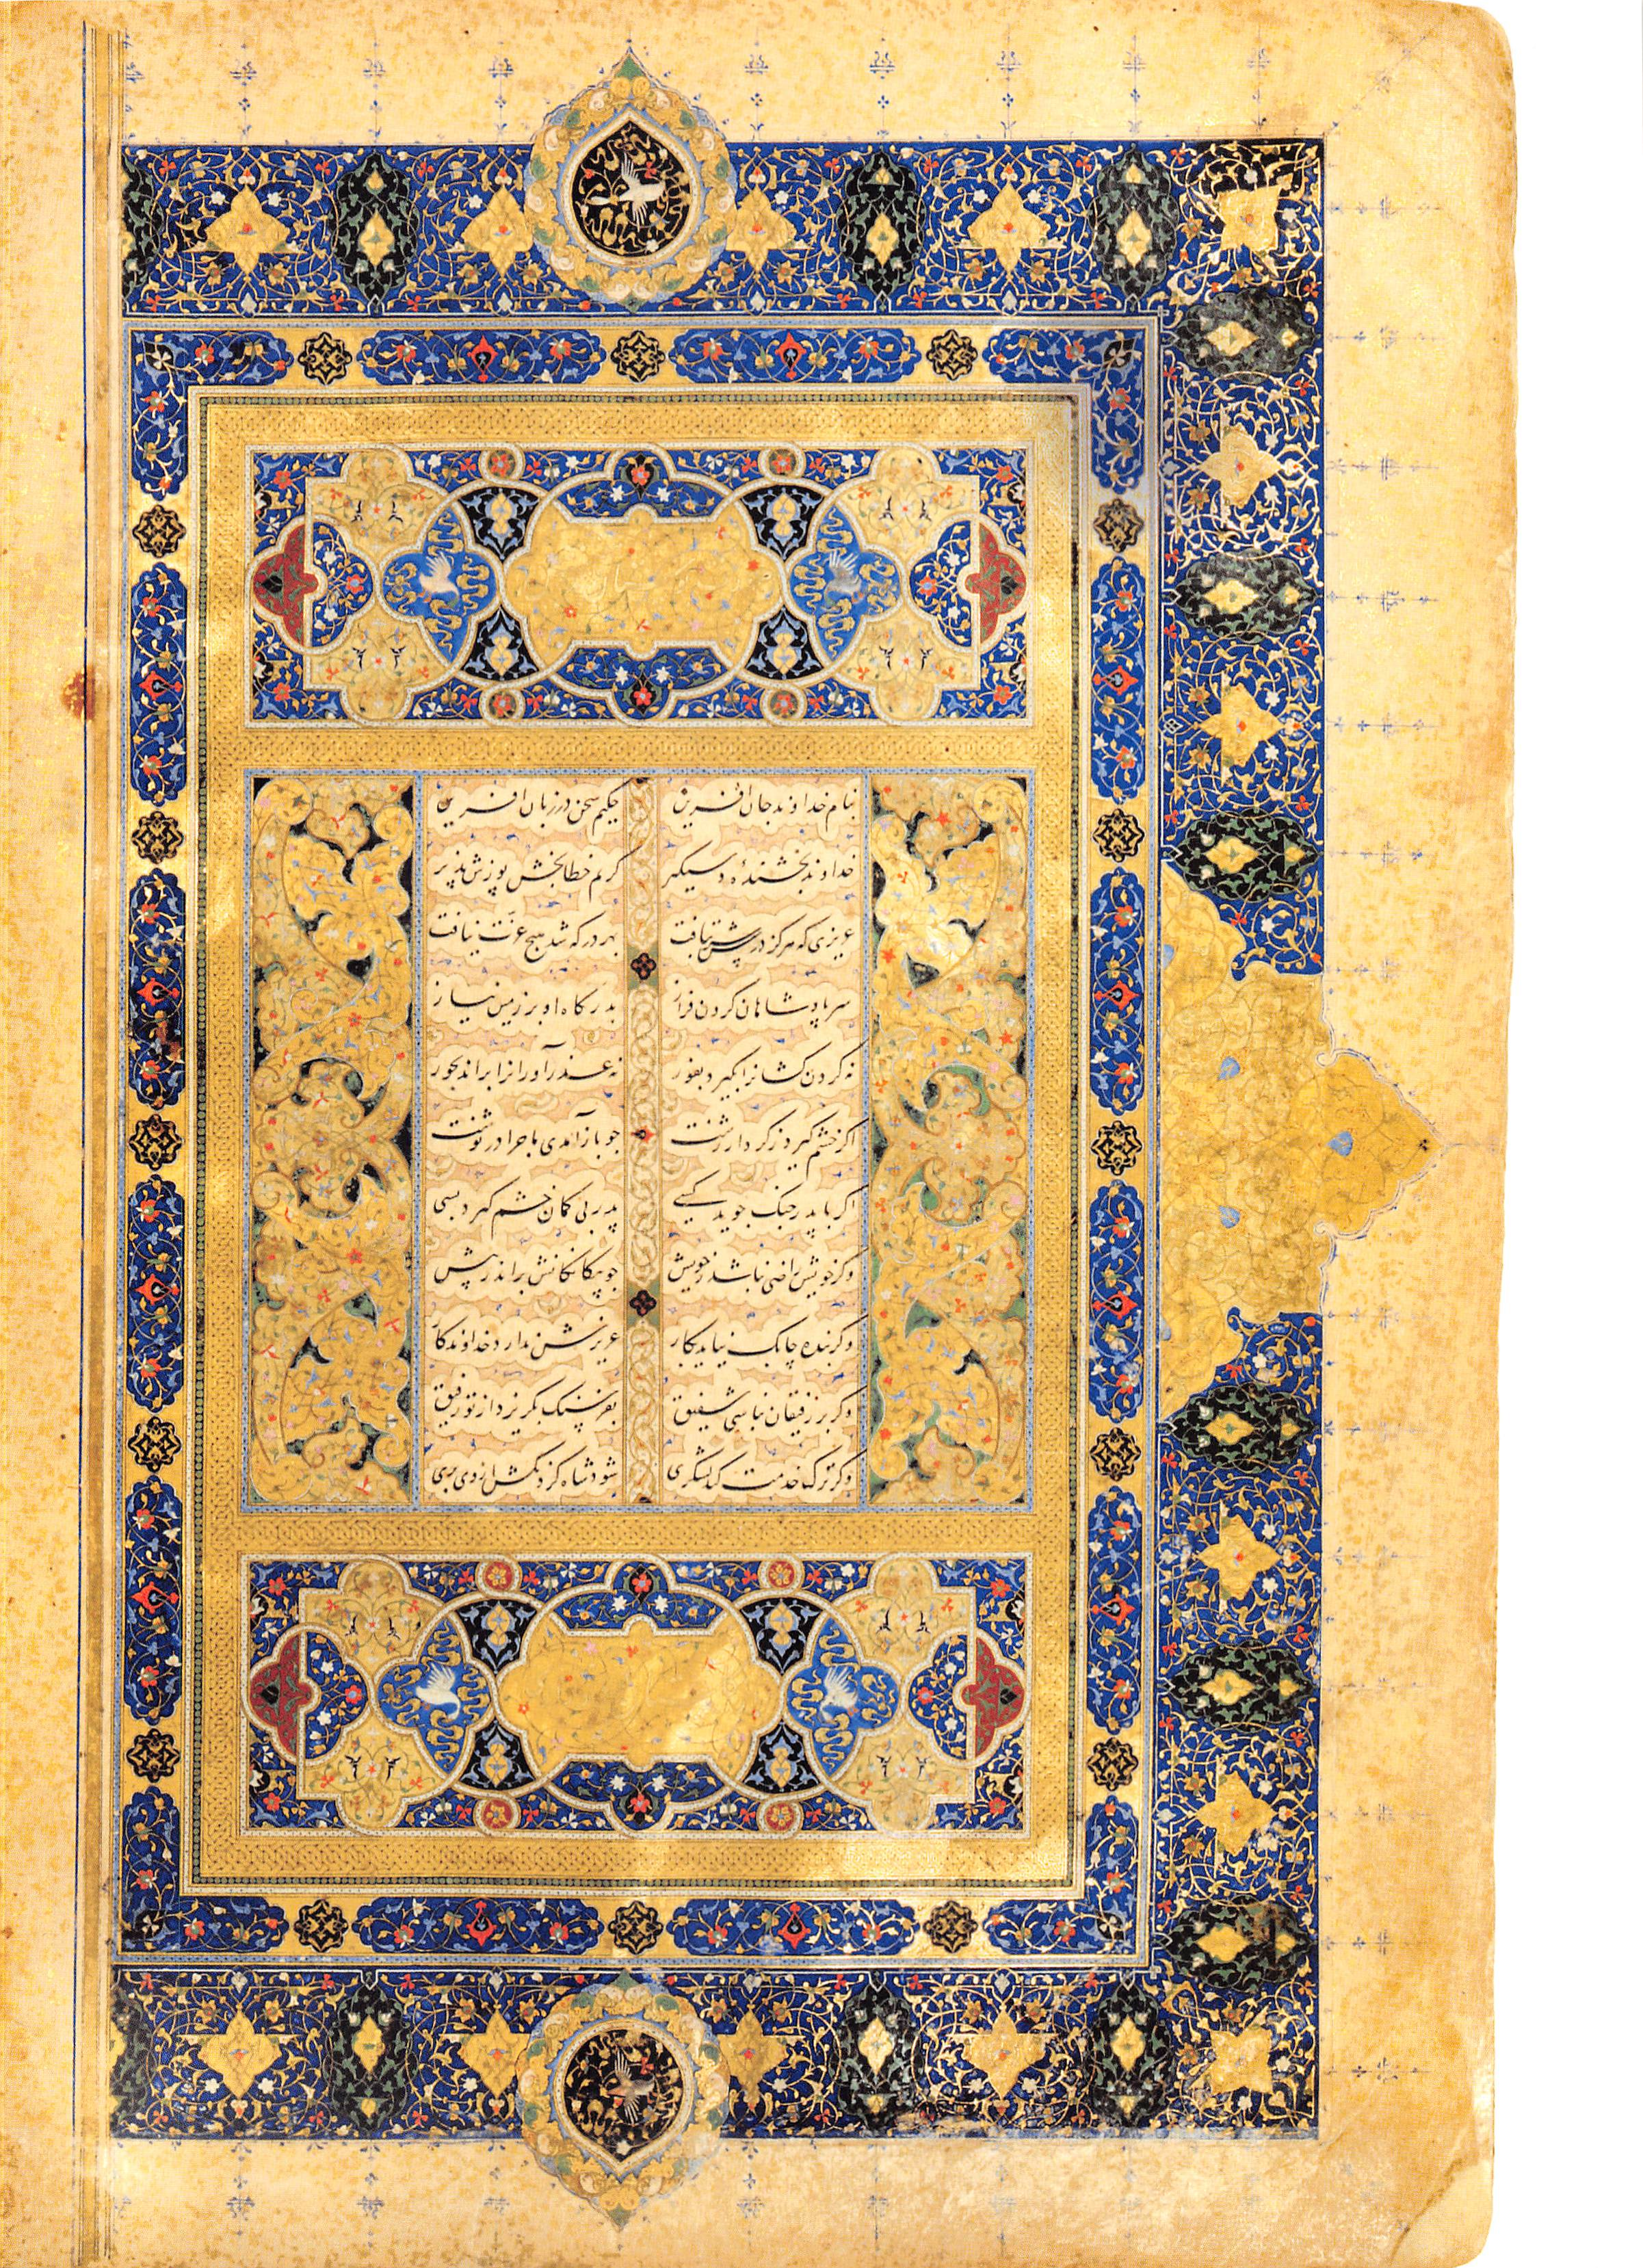 بنام خداوند جان آفرین حکیم سخن در زبان آفرین
خداوند بخشندهٔ دستگیر کریم خطابخش پوزش پذیر
عزیزی که هرکز درش سر بتافت بهر در که شد هیچ عزّت نیافت
سر پادشاهان کردن فراز بدرکاه او بر زمین نیاز
نه کردن کشانرا بکیرد بفور نه عذرآورانرا براند بجور
اکر خشم کیرد ز کردار زشت چو بازآمدی ماجرا درنوشت
اکر با پدر جنک جوید کسی پدر بی کمان خشم کیرد بسی
وکر خویش راضی نباشد ز خویش چو بیکانکانش براند ز پیش
وکر بنده چابک نیاید بکار عزیزش ندارد خداوندکار
وکر بر رفیقان نباشی شفیق بفرسنک بکریزد از تو رفیق
وکر ترک خدمت کند لشکری شود شاه کردنکش از وی بری